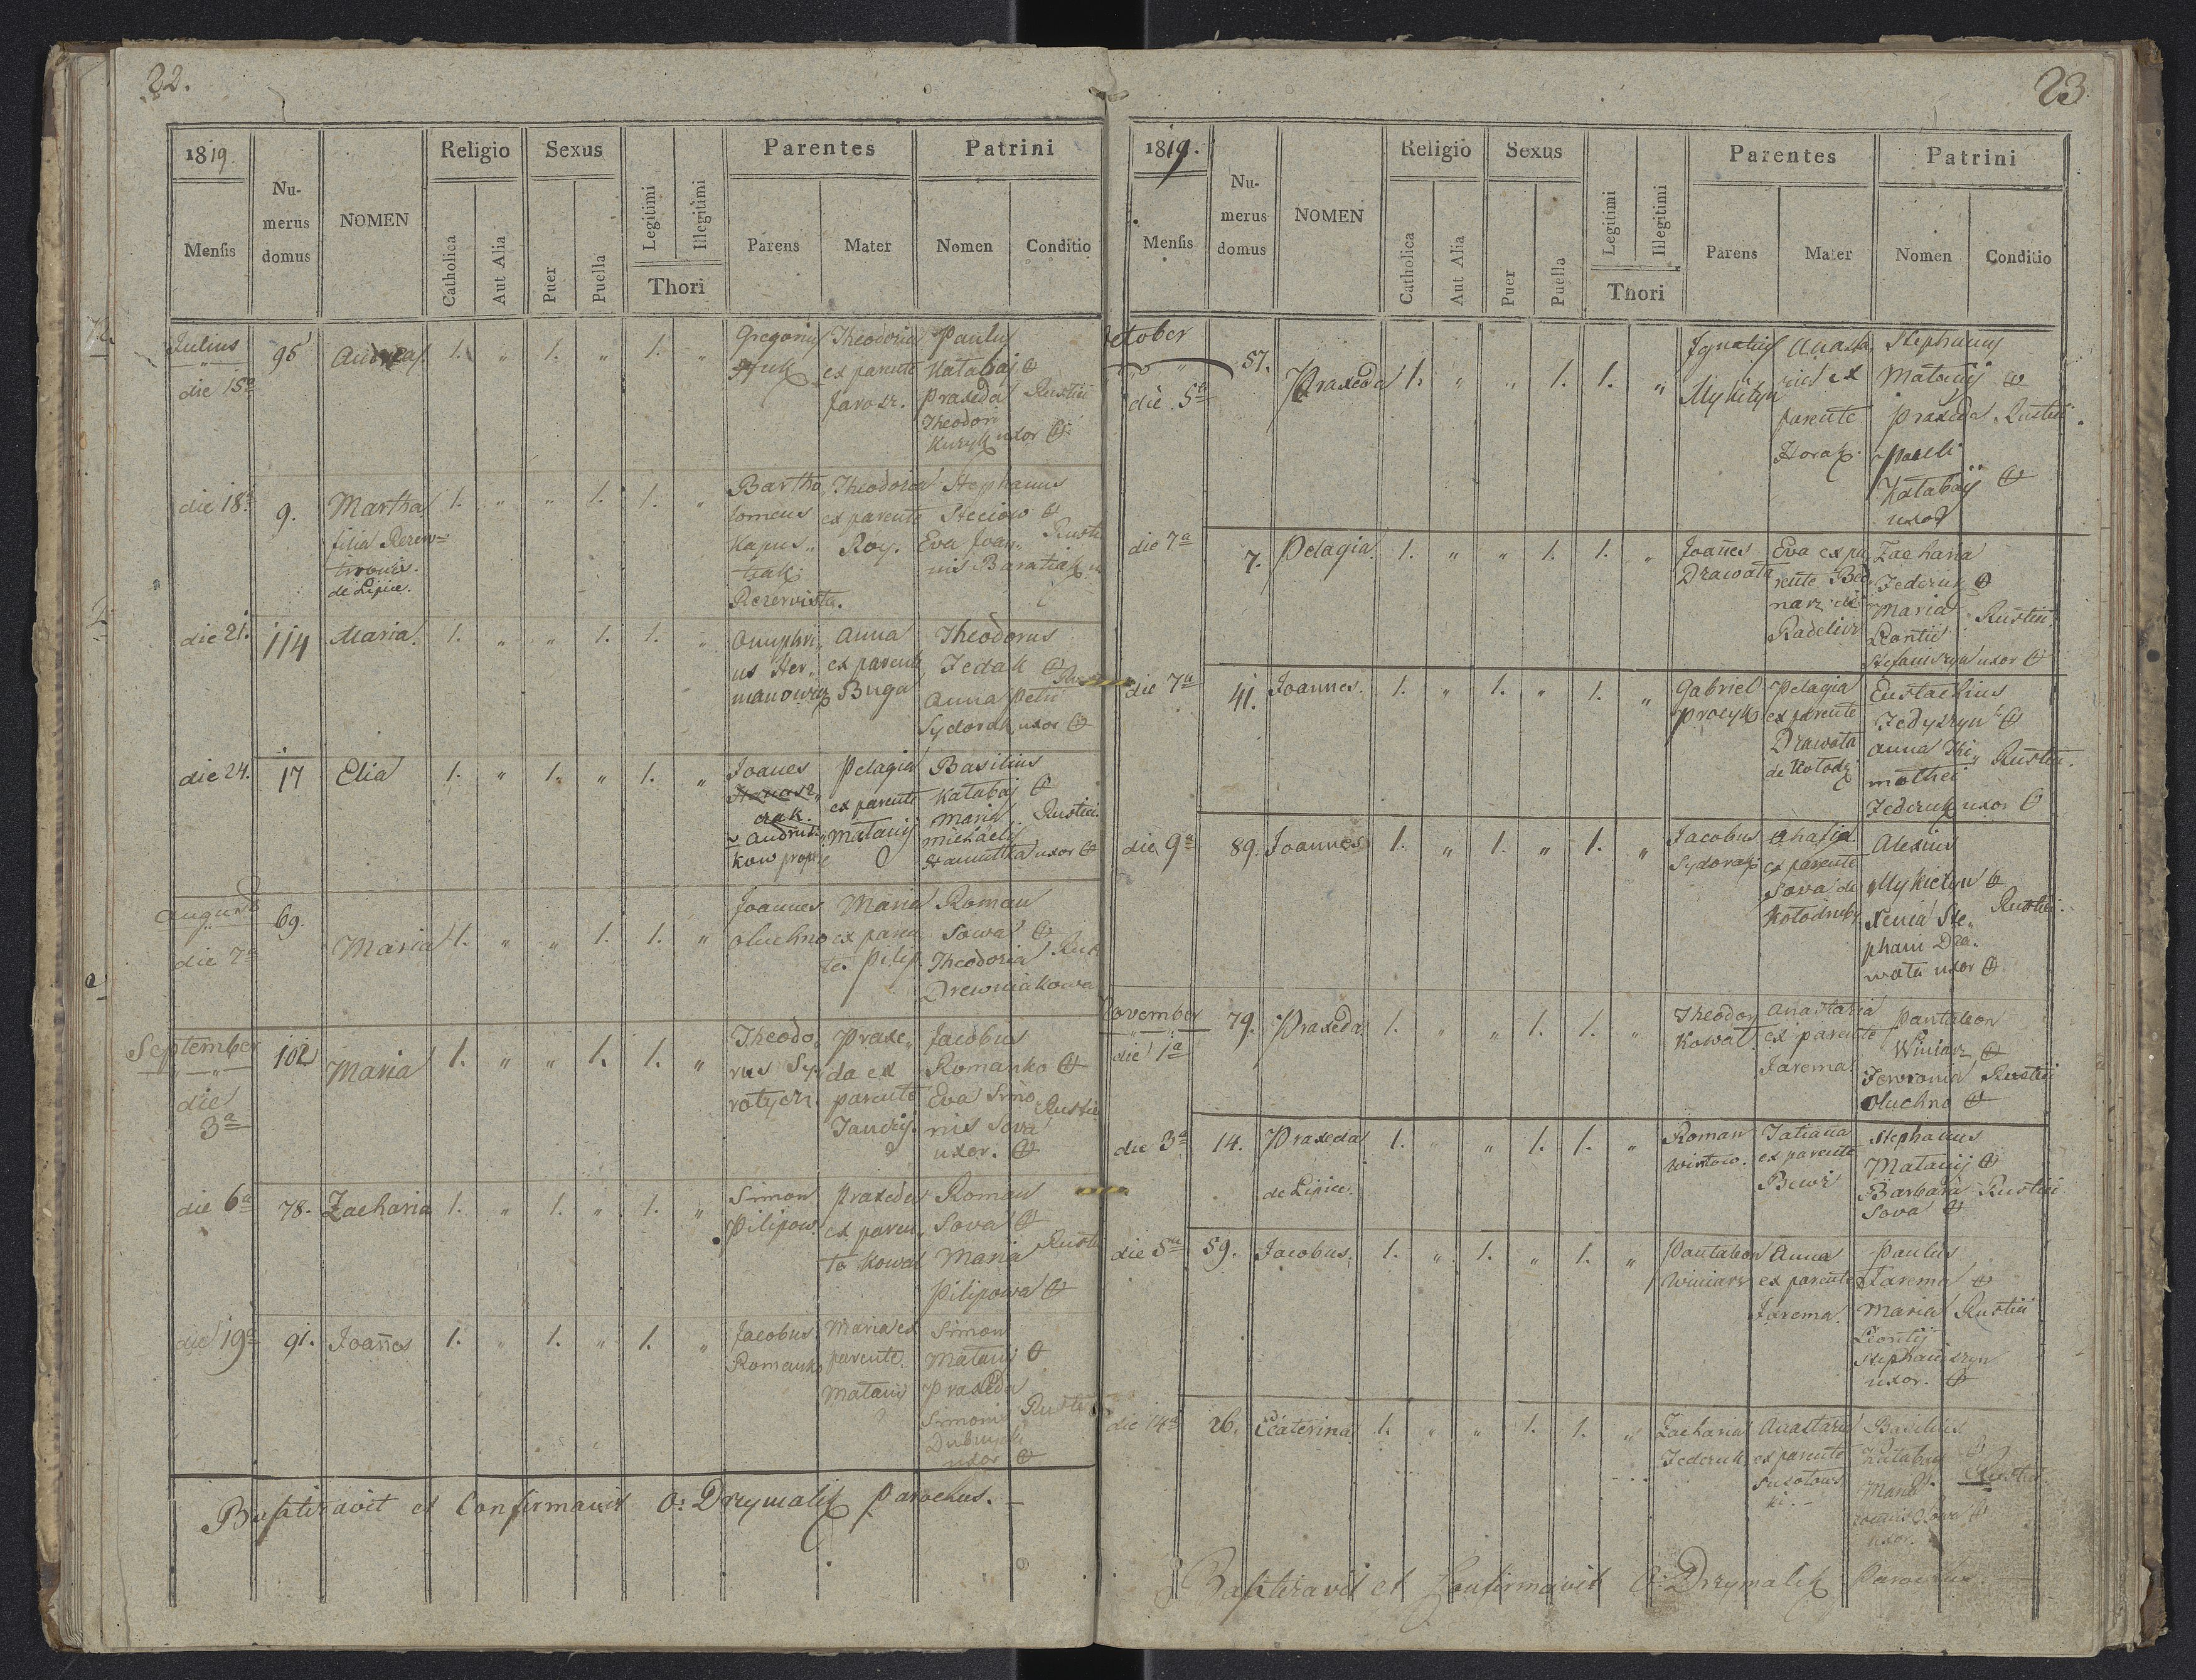 22.
1819.
Mensis
Nu-
merus
domus
NOMEN
Religio
Catholica
Aut Alia
Sexus
Puer
Puella
Legitimi
Illegitimi
Thori
Parentes
Parens
Mater
Patrini
Nomen
Conditio
Julius
die 15a
95
Andreas
1. " 1. " 1. "
Gregorius
Theodoria
ex parente
Jarosz.
Paulus
Katabaj
Praxeda
Theodori
Kuryk uxor
Rustici
die 18a
9.
Martha
filia Rezerw=
de Lipice.
1. " " 1. 1. "
Bartho
lomeus
Kapus"
tiak
Rezerwista.
Theodoria
ex parente
Roy.
Stephanus
Steciow
Eva Joan"
nis Baratiak
Rusti
die 21.
114
Maria.
1. " " 1. 1. "
Onuphri"
us Her"
manowicz
Anna
ex parente
Buga
Theodorus
Fedak
Anna Petri
Sydorak uxor
die 24.
17
Elia
1. " 1. " 1. "
Joanes
Andrusi
kow proprie
Pelagia
ex parente
Matanij
Basilius
Katabaj
Maria
Michaelis
uxor
Rustici
August
die 7a
69.
Maria
1. " " 1. 1. "
Joannes
Oluchno
Maria
ex paren
te Pilip
Roman
Sowa
Theodoria
Drewniakowa
September
die
3a
102
Maria
1. " " 1. 1. "
Theodo"
rus Sy"
rotycz.
Praxe"
da ex
parente
Jacobus
Romanko
Eva Simo
nis Sova
uxor.
Rustici
die 6a
78.
Zacharia
1. " 1. " 1. "
Simon
Pilipow.
Praxeda
ex paren"
te Kowal
Roman
Sova
Maria
Pilipowa
Rusti
die 19a
91.
Joannes
1. " 1. " 1. "
Jacobus
Romanko
Maria ex
parente
Matanij
Simon
Matanij
Praxeda
Simonis
uxor
Baptizavit et Confirmavit O: Drzymalik Parochus.
23.
1819.
Mensis
Nu-
merus
domus
NOMEN
Religio
Catholica
Aut Alia
Sexus
Puer
Puella
Legitimi
Illegitimi
Thori
Parentes
Parens
Mater
Patrini
Nomen
Conditio
October
die 5a
57.
Praxeda
1. " " 1. 1. "
Ignatius
Mykityn
Anasta
ria ex
parente
Horak.
Stephanus
Matanij
Praxeda
Pauli
Katabaij
uxor
Rustici.
die 7a
7.
Pelagia.
1. " " 1. 1. "
Joannes
Drawata
Eva ex pa
rente Bed
narz de
Radelicz
Zacharia
Federuk
Maria
Leontii
Stefaniszyn uxor
Rustici.
die 7a
41.
Joannes.
1. " 1. " 1. "
Gabriel
Procyk
Pelagia
ex parente
Drawata
de Kolodr.
Eustachius
Fedyszyn
Anna Thi"
mothei
Federuk uxor
Rustici.
die 9a
89.
Joannes
1. " 1. " 1. "
Jacobus
Sydorak
ex parente
Sova de
Kolodruby
Alexius
Mykietyn
Xenia Ste"
phani Dra"
wata uxor
Rustici.
November
die 1a
79.
Praxeda
1. " " 1. 1. "
Theodor
Kowal
Anastasia
ex parente
Jarema.
Pantaleon
Winiarz
Fewronia
Oluchno
Rustici
die 3a
14.
Praxeda
de Lipice.
1. " " 1. 1. "
Roman
Tatiana
ex parente
Stephanus
Matanij
Barbara
Sova
Rustici
die 5a
59.
Jacobus.
1. " 1. " 1. "
Pantaleon
Winiarz
Anna
ex parente
Jarema.
Paulus
Jarema
Maria
Leontij
Stephaniszyn
uxor.
Rustici
die 14a
26.
Ecaterina
1. " " 1. 1. "
Zacharia
Federuk
Anastasia
ex parente
Basilius
Maria
uxor.
Rustici.
Baptizavit et Confirmavit O: Drzymalik Parochus.